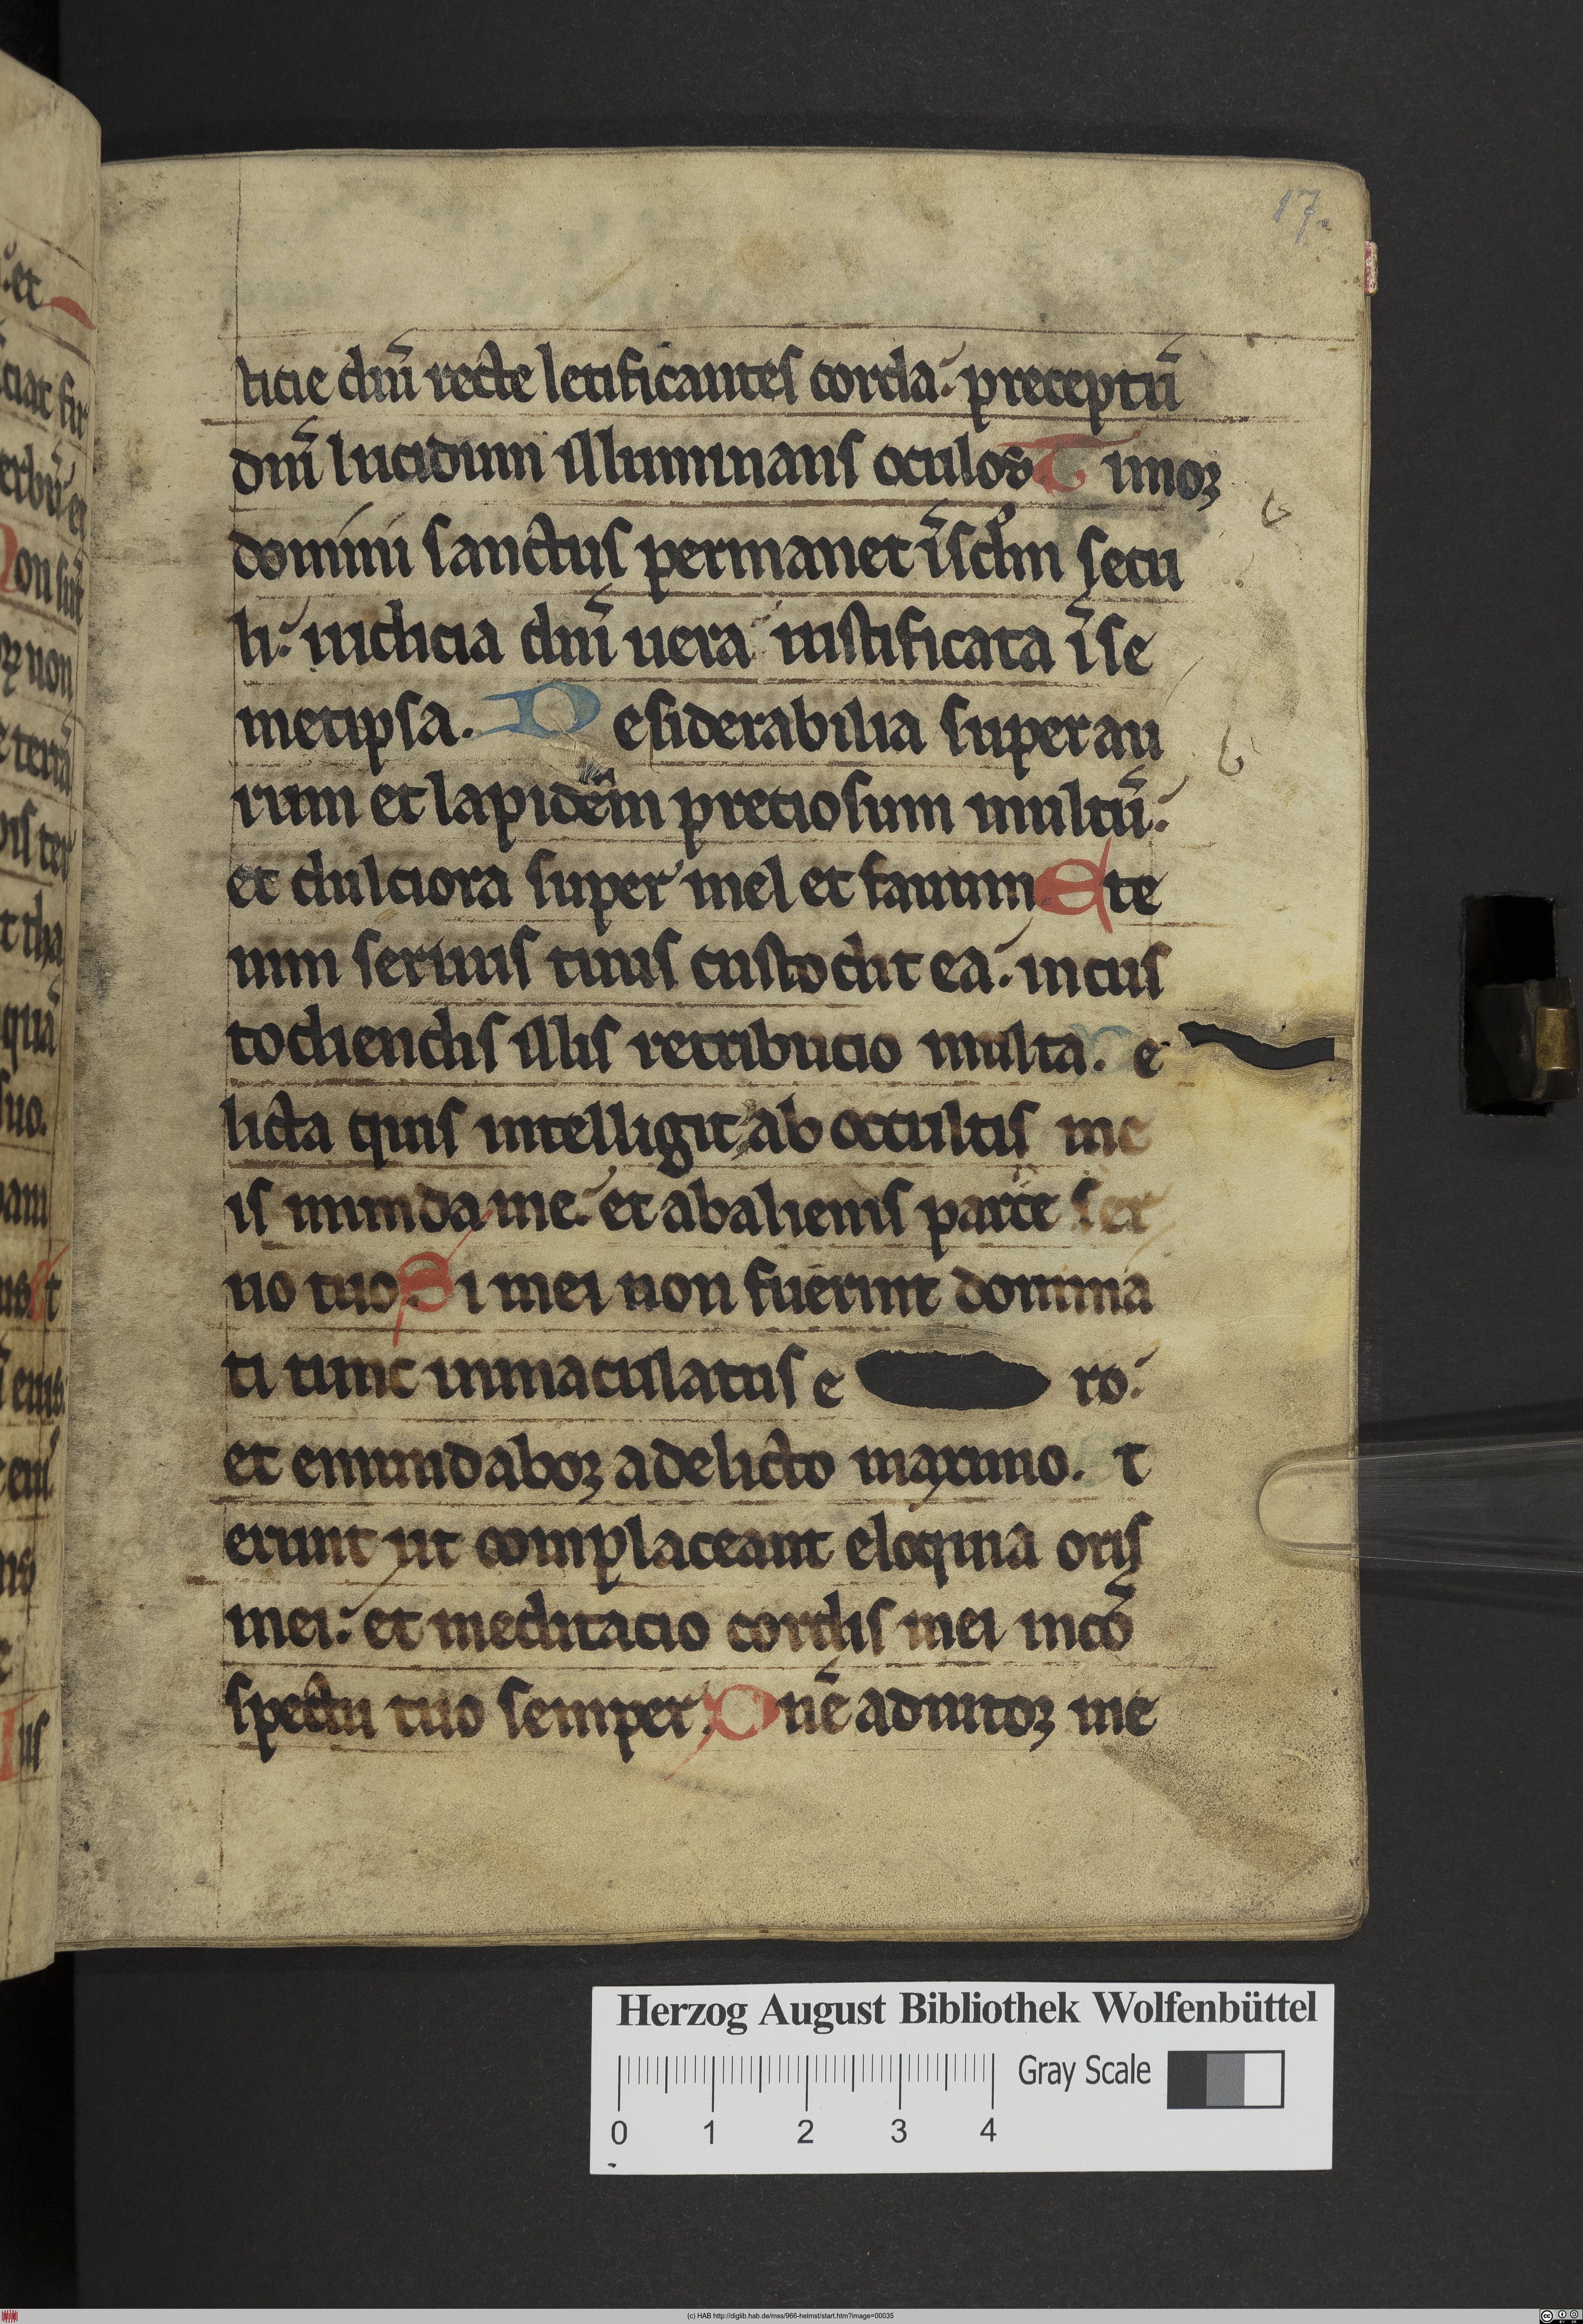 17.
ticie dnī recte letificantes corda. preceptū
dnī lucidum illuminans oculos. Timoꝛ
domini sanctus permanet ī sclm secu
li. iudicia dnī uera iustificata ī se
metipsa. Desiderabilia super au
rum et lapidēm preciosum multū.
et dulciora super mel et fauum. Ete
nim seruus tuus custodit ea. in cus
todiendis illis retribucio multa. De
licta quis intelligit ab occultis me
is munda me. et ab alienis parce ser
uo tuo. Si mei non fuerint domina
ti tunc inmaculatus e ro.
et emundaboꝛ a delicto maximo. Et
erunt ut complaceant eloquia oris
mei. et meditacio cordis mei in cō
spectu tuo semper. Dnē adiutoꝛ me
et
ciat fir
erbū et
Non sūt
non
terrā
ter
t tha
quā
suo.
et
eius
eiu
us
Herzog August Bibliothek Wolfenbüttel
Gray Scale
0 1 2 3 4
(c) HAB http://diglib.hab.de/mss/966-helmst/start.htm?image=00035